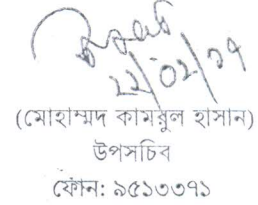 ২২/০২/১৭
(মোহাম্মদ কামরুল হাসান)
উপসচিব
ফোন: ৯৫১৩৩৭১